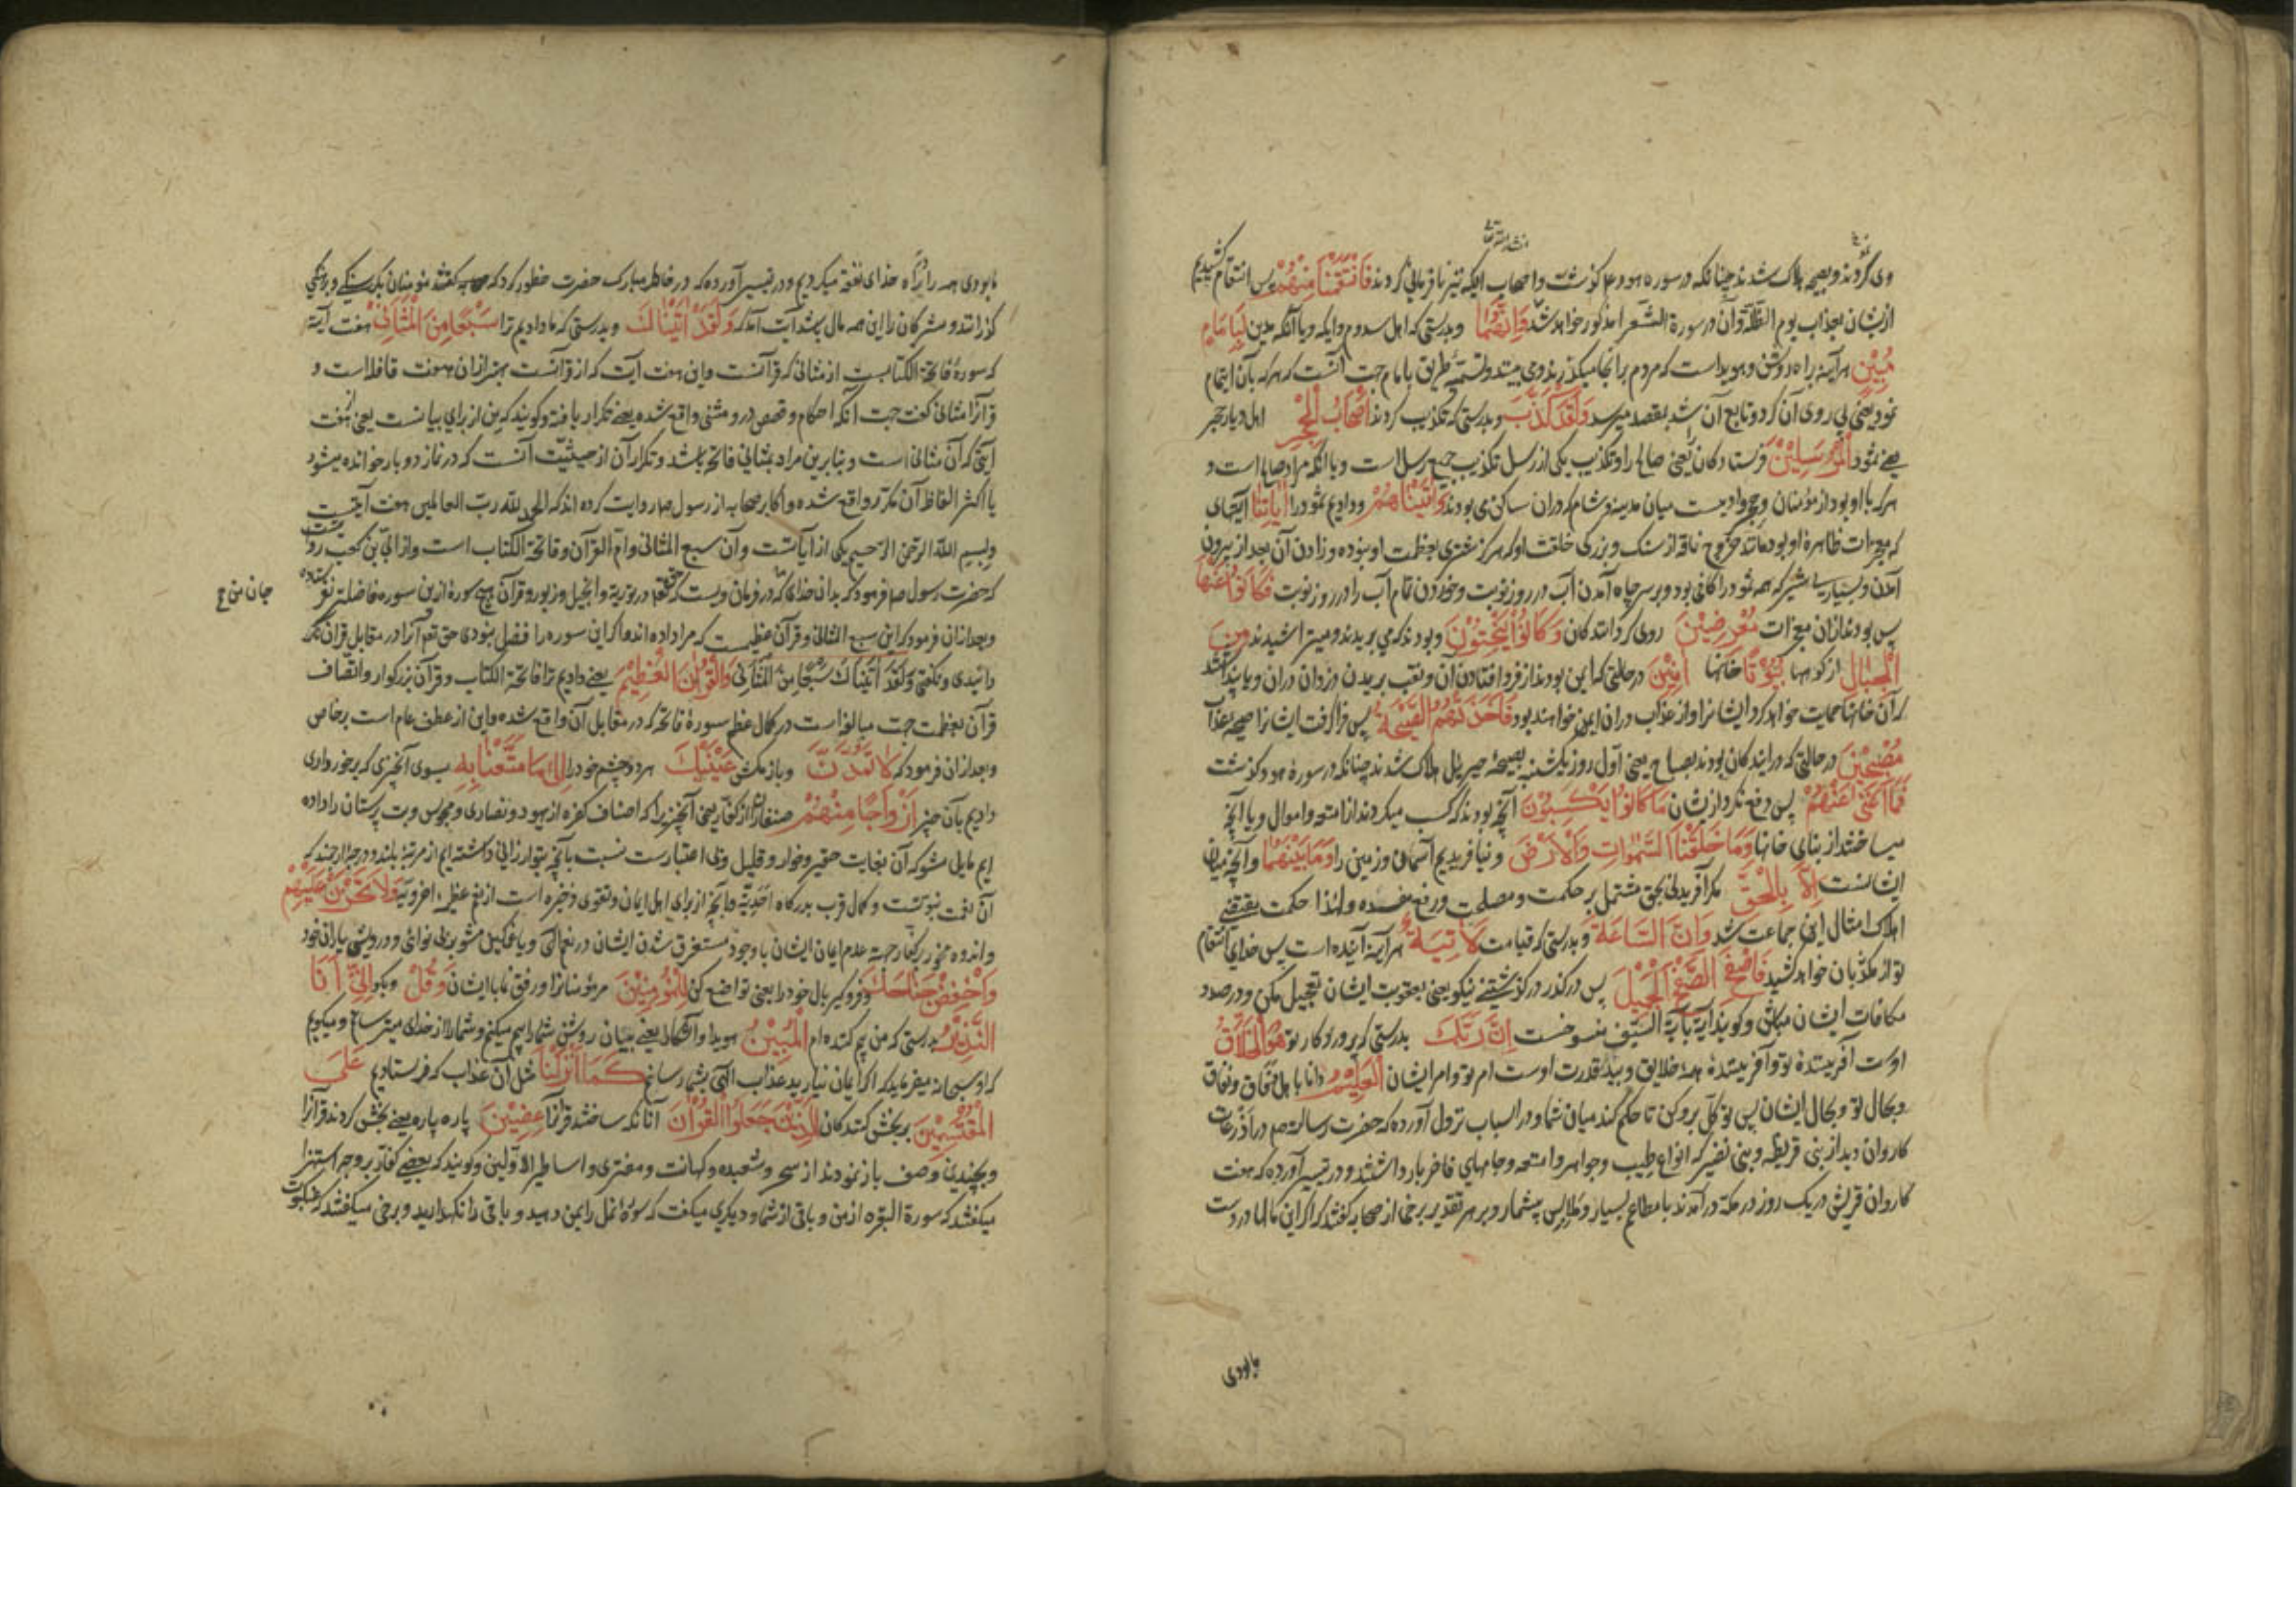 وی گردند و بصیحه هلاک شدند چنانکه در سوره هود ع م گذشت واصحاب ایکه نیز نافرمانی کردند فَانْتَقَمْنَا مِنْهُمْ پس انتقام کشیدیم
ان شاء الله تعالی
ازیشان بعذاب یوم الظلّة وآن در سورة الشعرا مذکور خواهد شد وَاِنَّهُمَا و بدرستی که اهل سدوم وایکه ویا آنکه مدین لَبِاِمَامٍ
مُبِیْنٍ هرآینه براه روشن وهویداست که مردم برانجا میگذرند ومی بینند وتسمیۀ طریق بامام جهت آنست که هرکه بآن ایتمام
نمود یعنی پی روی آن کرد وتابع آن شد بمقصد میرسد وَلَقَدْ کَذَّبَ و بدرستی که تکذیب کردند اَصْحَابُ الْحِجْرِ اهل دیار حجر
یعنی ثمود الْمُرْسَلِیْنَ فرستادگان یعنی صالح را وتکذیب یکی از رسل تکذیب جمیع رسل است ویا آنکه مراد صالح است و
هرکه با او بود از مؤمنان وحجر وادیست میان مدینه وشام که دران ساکن می بودند وَاٰتَیْنَاهُمْ ودادیم ثمود را اٰیَاتِنَا آیتهای
که معجزات ظاهرۀ او بود مانند خروج ناقه از سنگ وبزرگی خلقت او که هرگز شتری بعظمت او نبوده وزادن آن بعد از بیرون
آمدن وبسیاری شیر که همه ثمود را کافی بود وبر سر چاه آمدن آب در روز نوبت وخوردن تمام آب را در روز نوبت فَکَانُوْا عَنْهَا
پس بودند ازان معجزات مُعْرِضِیْنَ روی گردانندگان وَکَانُوْا یَنْحِتُوْنَ وبودند که می بریدند ومیتراشیدند مِنَ
الْجِبَالِ از کوهها بُیُوْتًا خانها اٰمِنِیْنَ درحالتی که ایمن بودند از فرو افتادن آن ونقب بریدن دزدان دران ویا پنداشتند
که آن خانها حمایت خواهد کرد ایشانرا واز عذاب دران ایمن خواهند بود فَاَخَذَتْهُمُ الصَّیْحَةُ پس فرا گرفت ایشانرا صیحه عذاب
مُصْبِحِیْنَ درحالتی که درایندگان بودند بصباح یعنی اول روز یکشنبه بصیحۀ جبرییل هلاک شدند چنانکه در سورۀ هود گذشت
فَمَا اَغْنٰی عَنْهُمْ پس دفع نکرد ازیشان مَا کَانُوْا یَکْسِبُوْنَ آنچه بودند که کسب میکردند از امتعه واموال ویا آنچه
میساختند از بنای خانها وَمَا خَلَقْنَا السَّمٰوَاتِ وَالْاَرْضَ ونیافریدیم آسمانی وزمین را وَمَا بَیْنَهُمَا وآنچه میان
ایشانست اِلَّا بِالْحَقِّ مگر آفریدنی بحق مشتمل بر حکمت ومصلحت ورفع مفسده ولهذا حکمت مقتضی
اهلاک امثال این جماعت شد وَاِنَّ السَّاعَةَ وبدرستی که قیامت لَاٰتِیَةٌ هرآینه آینده است پس خدای انتقام
تو از مکذبان خواهد کشید فَاصْفَحِ الصَّفْحَ الْجَمِیْلَ پس درگذر درگذشتنی نیکو یعنی بعقوبت ایشان تعجیل مکن ودر صدد
مکافات ایشان مباش وگویند آیه بآیة السیف منسوخست اِنَّ رَبَّکَ بدرستی که پروردگار تو هُوَ الْخَلَّاقُ
اوست آفرینندۀ تو وآفرینندۀ همه خلایق وبید قدرت اوست امر تو وامر ایشان الْعَلِیْمُ دانا باهل شقاق ونفاق
وبحال تو وبحال ایشان پس توکل برو کن تا حکم کند میان شما ودر اسباب نزول آورده که حضرت رسالت ص م در اذرعات
کاروان دید از بنی قریظه وبنی نضیر که انواع طیب وجواهر وامتعه وجامهای فاخر بار داشتند ودر تیسیر آورده که هفت
کاروان قریش در یک روز در مکه درآمدند با مطاعم بسیار وملابس بیشمار وبر هر تقدیر برخی از صحابه گفتند که اگر این مالها در دست
مابودی
مابودی همه را براه خدای نفقه میکردیم ودر تیسیر آورده که در خاطر مبارک حضرت خطور کرد که صحابه گفتند مؤمنان بگرسنگی وبرهنگی
گذرانند ومشرکان را این همه مال باشد آیت آمد که وَلَقَدْ اٰتَیْنَاکَ وبدرستی که ما دادیم ترا سَبْعًا مِنَ الْمَثَانِیْ هفت آیه
که سورۀ فاتحة الکتابست از مثانی که قرآنست واین هفت آیت که از قرآنست بهتر ازان هفت قافله است و
قرآنرا مثانی گفت جهت آنکه احکام وقصص درو مثنی واقع شده یعنی تکرار یافته وگویند که من از برای بیانست یعنی هفت
آیتی که آن مثانی است وبنابرین مراد بمثانی فاتحه باشد وتکرار آن از حیثیت آنست که در نماز دو بار خوانده میشود
یا اکثر الفاظ آن مکرر واقع شده واکابر صحابه از رسول ص م روایت کرده اند که الحمد لله رب العالمین هفت آیتست
وبسم الله الرحمن الرحیم یکی از آیاتست وآن سبع المثانی وام القرآن وفاتحة الکتاب است واز ابی بن کعب روایتست
که حضرت رسول ص م فرمود که بدان خدای که در فرمان ویست که حق تعم در توریة وانجیل وزبور وقرآن هیچ سورۀ ازین سوره فاضلتر نفرستاده
جان من ع
وبعدازان فرمود که این سبع المثانی وقرآن عظیمست که مرا داده اند واگر این سوره را فضل نبودی حق تعم آنرا در مقابل قرآن نگ
دانیدی ونگفتی وَلَقَدْ اٰتَیْنَاکَ سَبْعًا مِنَ الْمَثَانِیْ وَالْقُرْاٰنَ الْعَظِیْمَ یعنی دادیم ترا فاتحة الکتاب وقرآن بزرگوار واتصاف
قرآن بعظمت جهت مبالغه است در کمال عظم سورۀ فاتحه که در مقابل آن واقع شده واین از عطف عام است بر خاص
وبعدازان فرمود که لَا تَمُدَّنَّ وباز مکش عَیْنَیْکَ هر دو چشم خود را اِلٰی مَا مَتَّعْنَا بِهٖ بسوی آنچیزی که برخورداری
دادیم بآن چیز اَزْوَاجًا مِنْهُمْ صنفها را از کفار یعنی آنچیز را که اصناف کفره از یهود ونصاری ومجوس وبت پرستان را داده
ایم مایل مشو که آن بغایت حقیر وخوار وقلیل وبی اعتبارست نسبت بآنچه بتو ارزانی داشته ایم از مرتبۀ بلند ودرجۀ ارجمند که
آن نعمت نبوتست وکمال قرب بدرگاه احدیّة وآنچه از برای اهل ایمان وتقوی ذخیره است از نعم عظیمه اخرویه وَلَا تَحْزَنْ عَلَیْهِمْ
واندوه مخور بر کفار جهة عدم ایمان ایشان باوجود مستغرق شدن ایشان در نعم الهی ویا غمگین مشو بر بی نوائی ودرویشی یاران خود
وَاخْفِضْ جَنَاحَکَ وفرو گیر بال خود را یعنی تواضع کن لِلْمُؤْمِنِیْنَ مر مؤمنانرا ورفق نما با ایشان وَقُلْ وبگو اِنِّیْ اَنَا
النَّذِیْرُ بدرستی که من بیم کننده ام الْمُبِیْنُ هویدا وآشکارا یعنی ببیان روشن شما را بیم میکنم وشما را از خدای میترسانم ومیگویم
که او سبحانه میفرماید که اگر ایمان نیارید عذاب الهی بشما رسانم کَمَا اَنْزَلْنَا مثل آن عذاب که فرستادیم عَلَی
الْمُقْتَسِمِیْنَ بر بخش کنندگان الَّذِیْنَ جَعَلُوا الْقُرْاٰنَ آنانکه ساختند قرآنرا عِضِیْنَ پاره پاره یعنی بخش کردند قرآنرا
وبچندین وصف باز نمودند از سحر وشعبده وکهانت ومفتری واساطیر الاولین وگویند که بعضی کفار بر وجه استهزا
میگفتند که سورة البقره از من وباقی از شما ودیگری میگفت که سورۀ نمل را بمن دهید وباقی را نگهدارید وبرخی میگفتند که عنکبوت